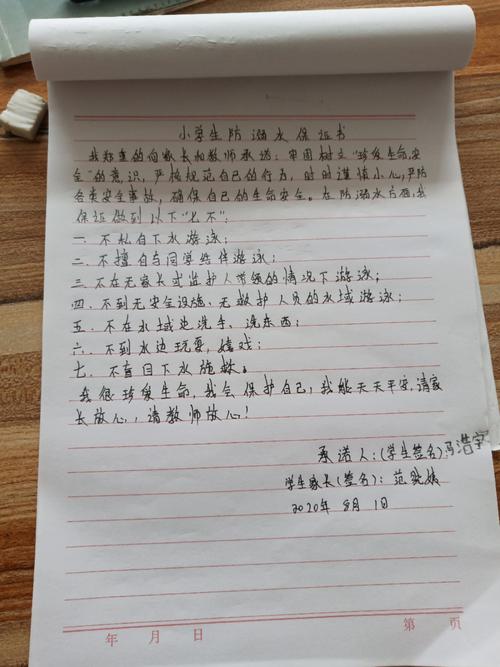 小学生防溺水保证书
我郑重的向家长和教师承诺：牢固树立“珍爱生命，安
全”的意识，严格规范自己的行为，时时谨慎小心，严防
各类安全事故，确保自己的生命安全。在防溺水方面，我
保证做到以下“七不”：
一、不私自下水游泳；
二、不擅自与同学结伴游泳；
三、不在无家长或监护人带领的情况下游泳；
四、不到无安全设施、无救护人员的水域游泳；
五、不在水域边洗手、洗东西；
六、不到水边玩耍，嬉戏；
七、不盲目下水施救。
我很珍爱生命，我会保护自己，我能天天平安，请家
长放心，请教师放心！
承诺人：(学生签名)冯浩宇
学生家长(签名)：范
2020年8月1日
年 月 日 第 页